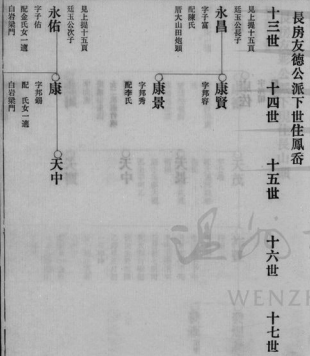 長房友德公派下世住鳳岙
十三世
十四世
十五世
十六世
十七世
見上提十五頁
廷玉公長子
永昌
字子富
配陳氏
居大山田炮頭
康賢
字邦容
康景
字邦秀
配李氏
見上提十五頁
廷玉公次子
永佑
字子佑
配金氏女一適
白岩梁門
康
字邦錫
配 氏女一適
白岩梁門
天中
WENZH